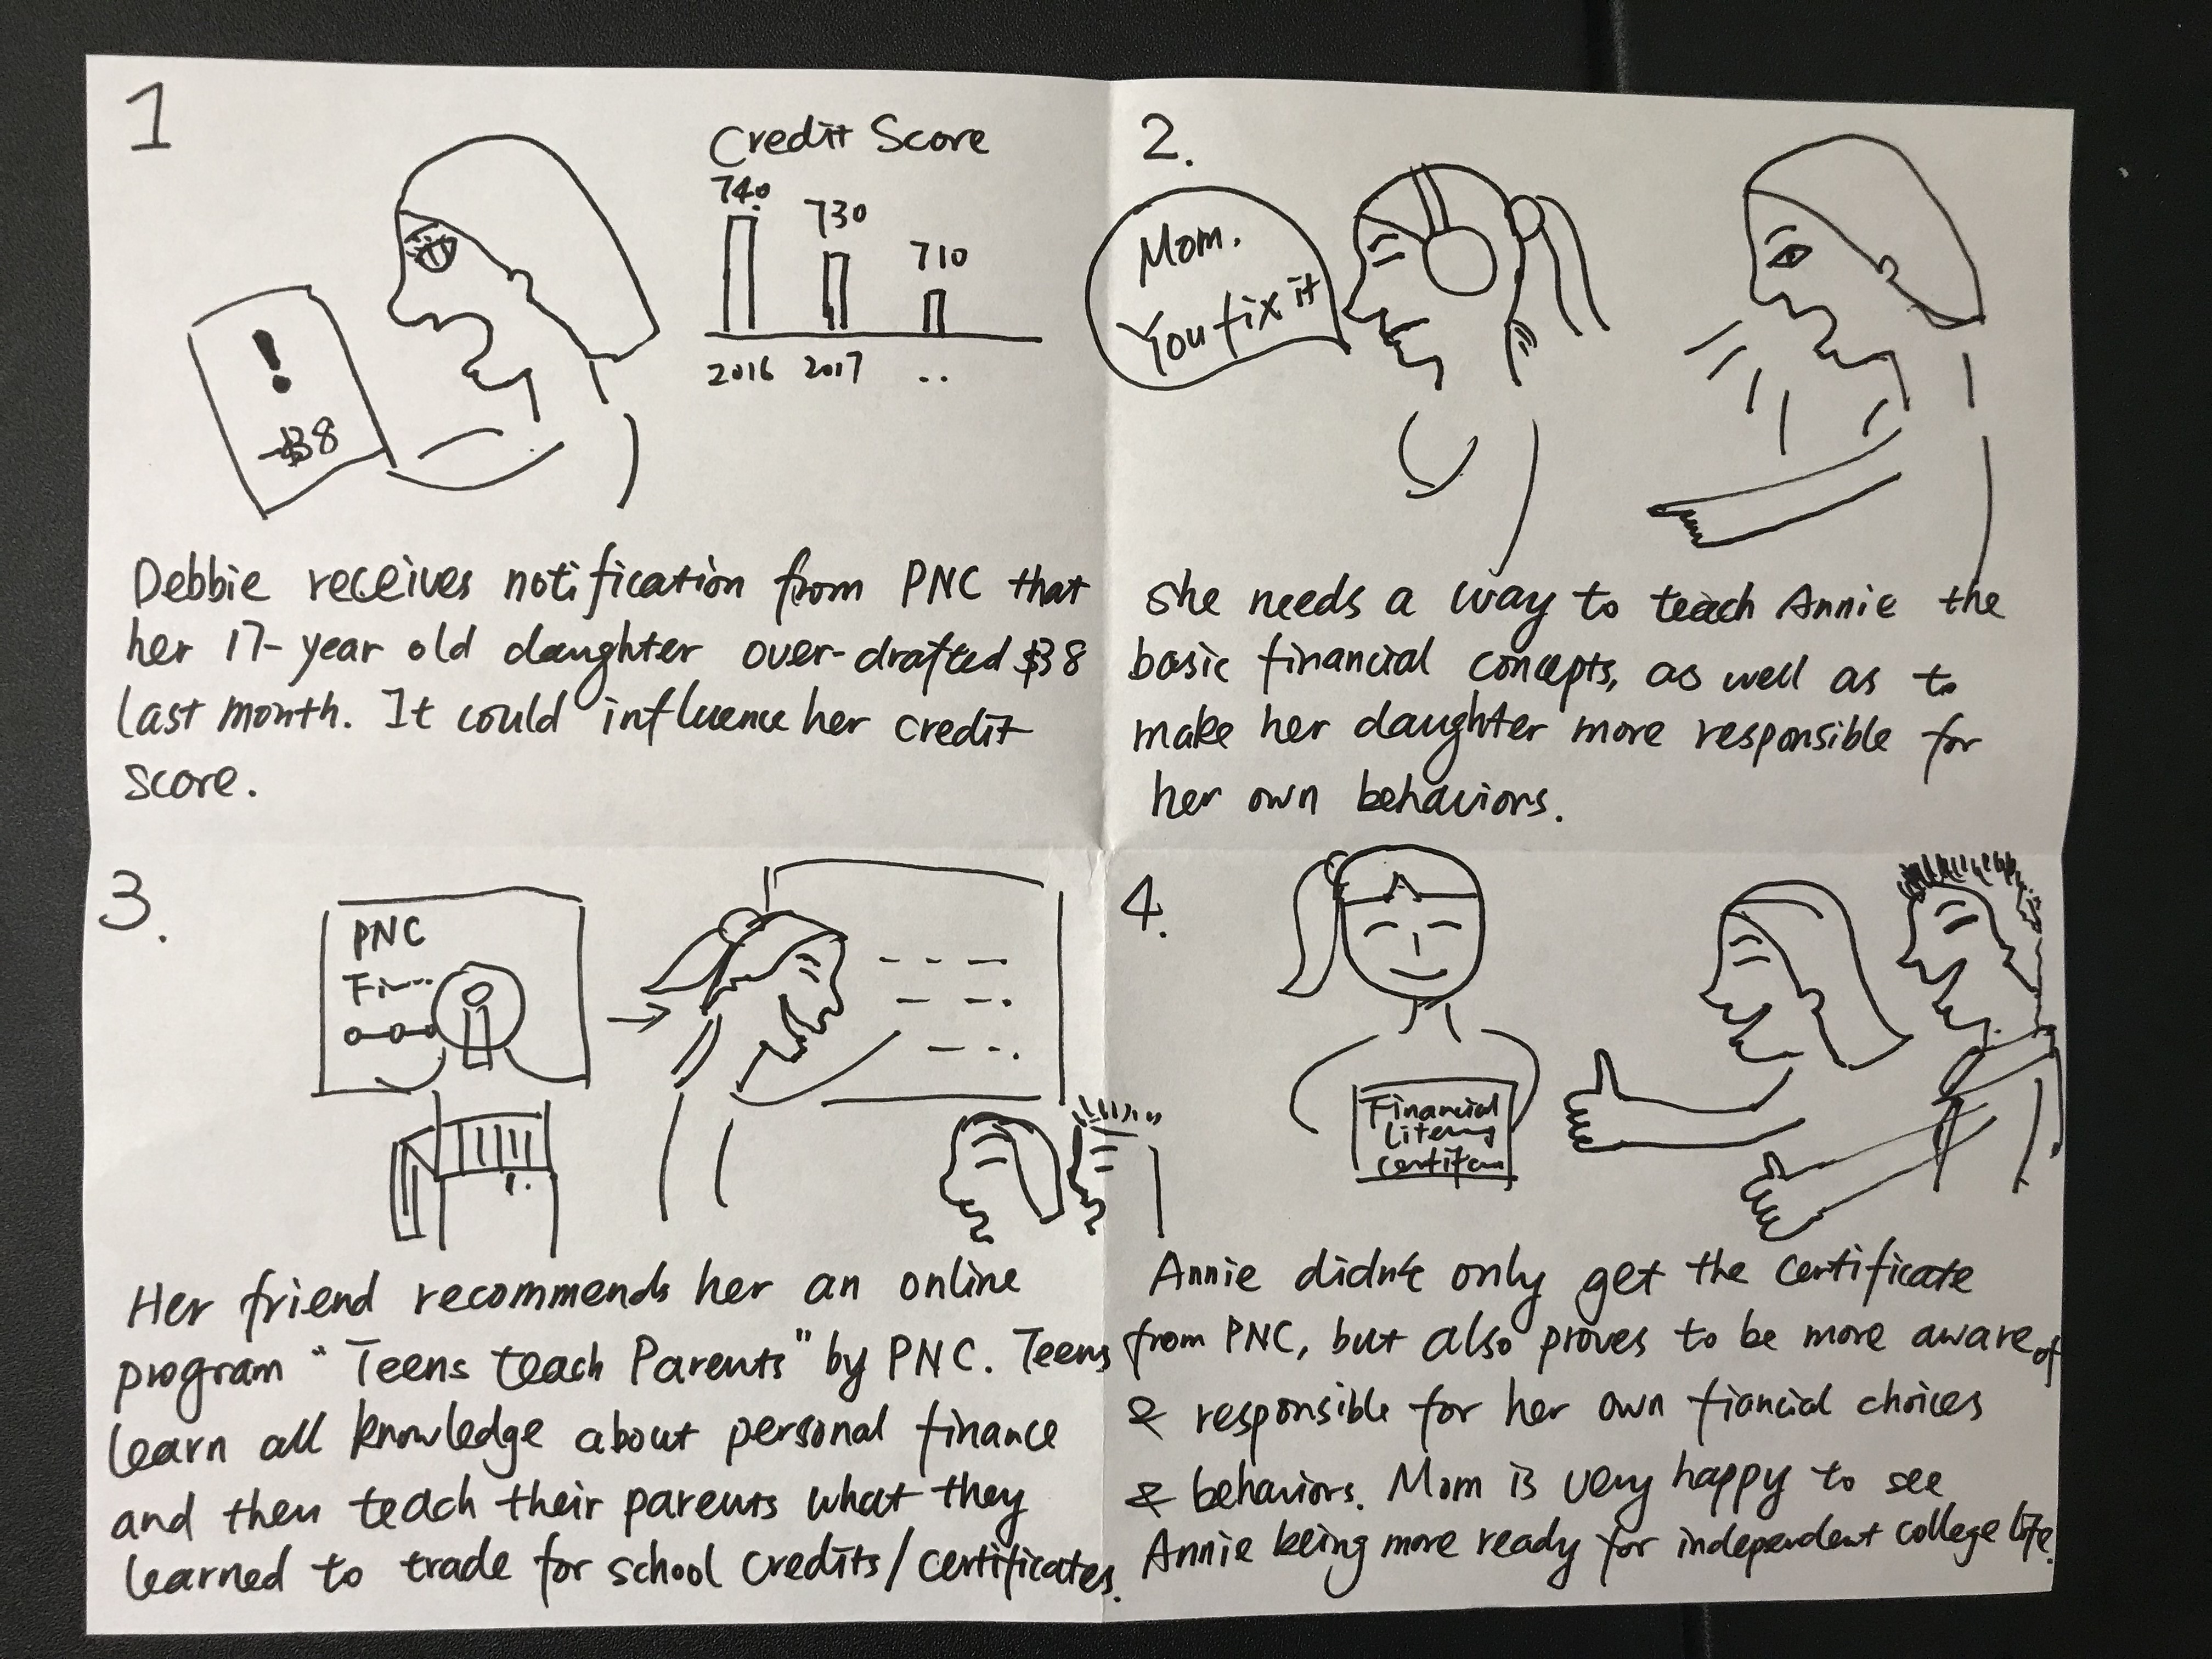 1
Credit Score
740
730
710
2016 2017 ..
!
-$38
Debbie receives notification from PNC that
her 17-year old daughter over-drafted $38
last month. It could influence her credit
score.
2.
Mom.
You fix it
She needs a way to teach Annie the
basic financial concepts, as well as to
make her daughter more responsible for
her own behaviors.
3.
PNC
Fi
Her friend recommends her an online
program "Teens teach Parents" by PNC. Teens
learn all knowledge about personal finance
and then teach their parents what they
learned to trade for school credits/certificates.
4.
Financial
Annie didn't only get the certificate
from PNC, but also proves to be more aware of
& responsible for her own fiancial choices
& behaviors. Mom is very happy to see
Annie being more ready for independent college life.